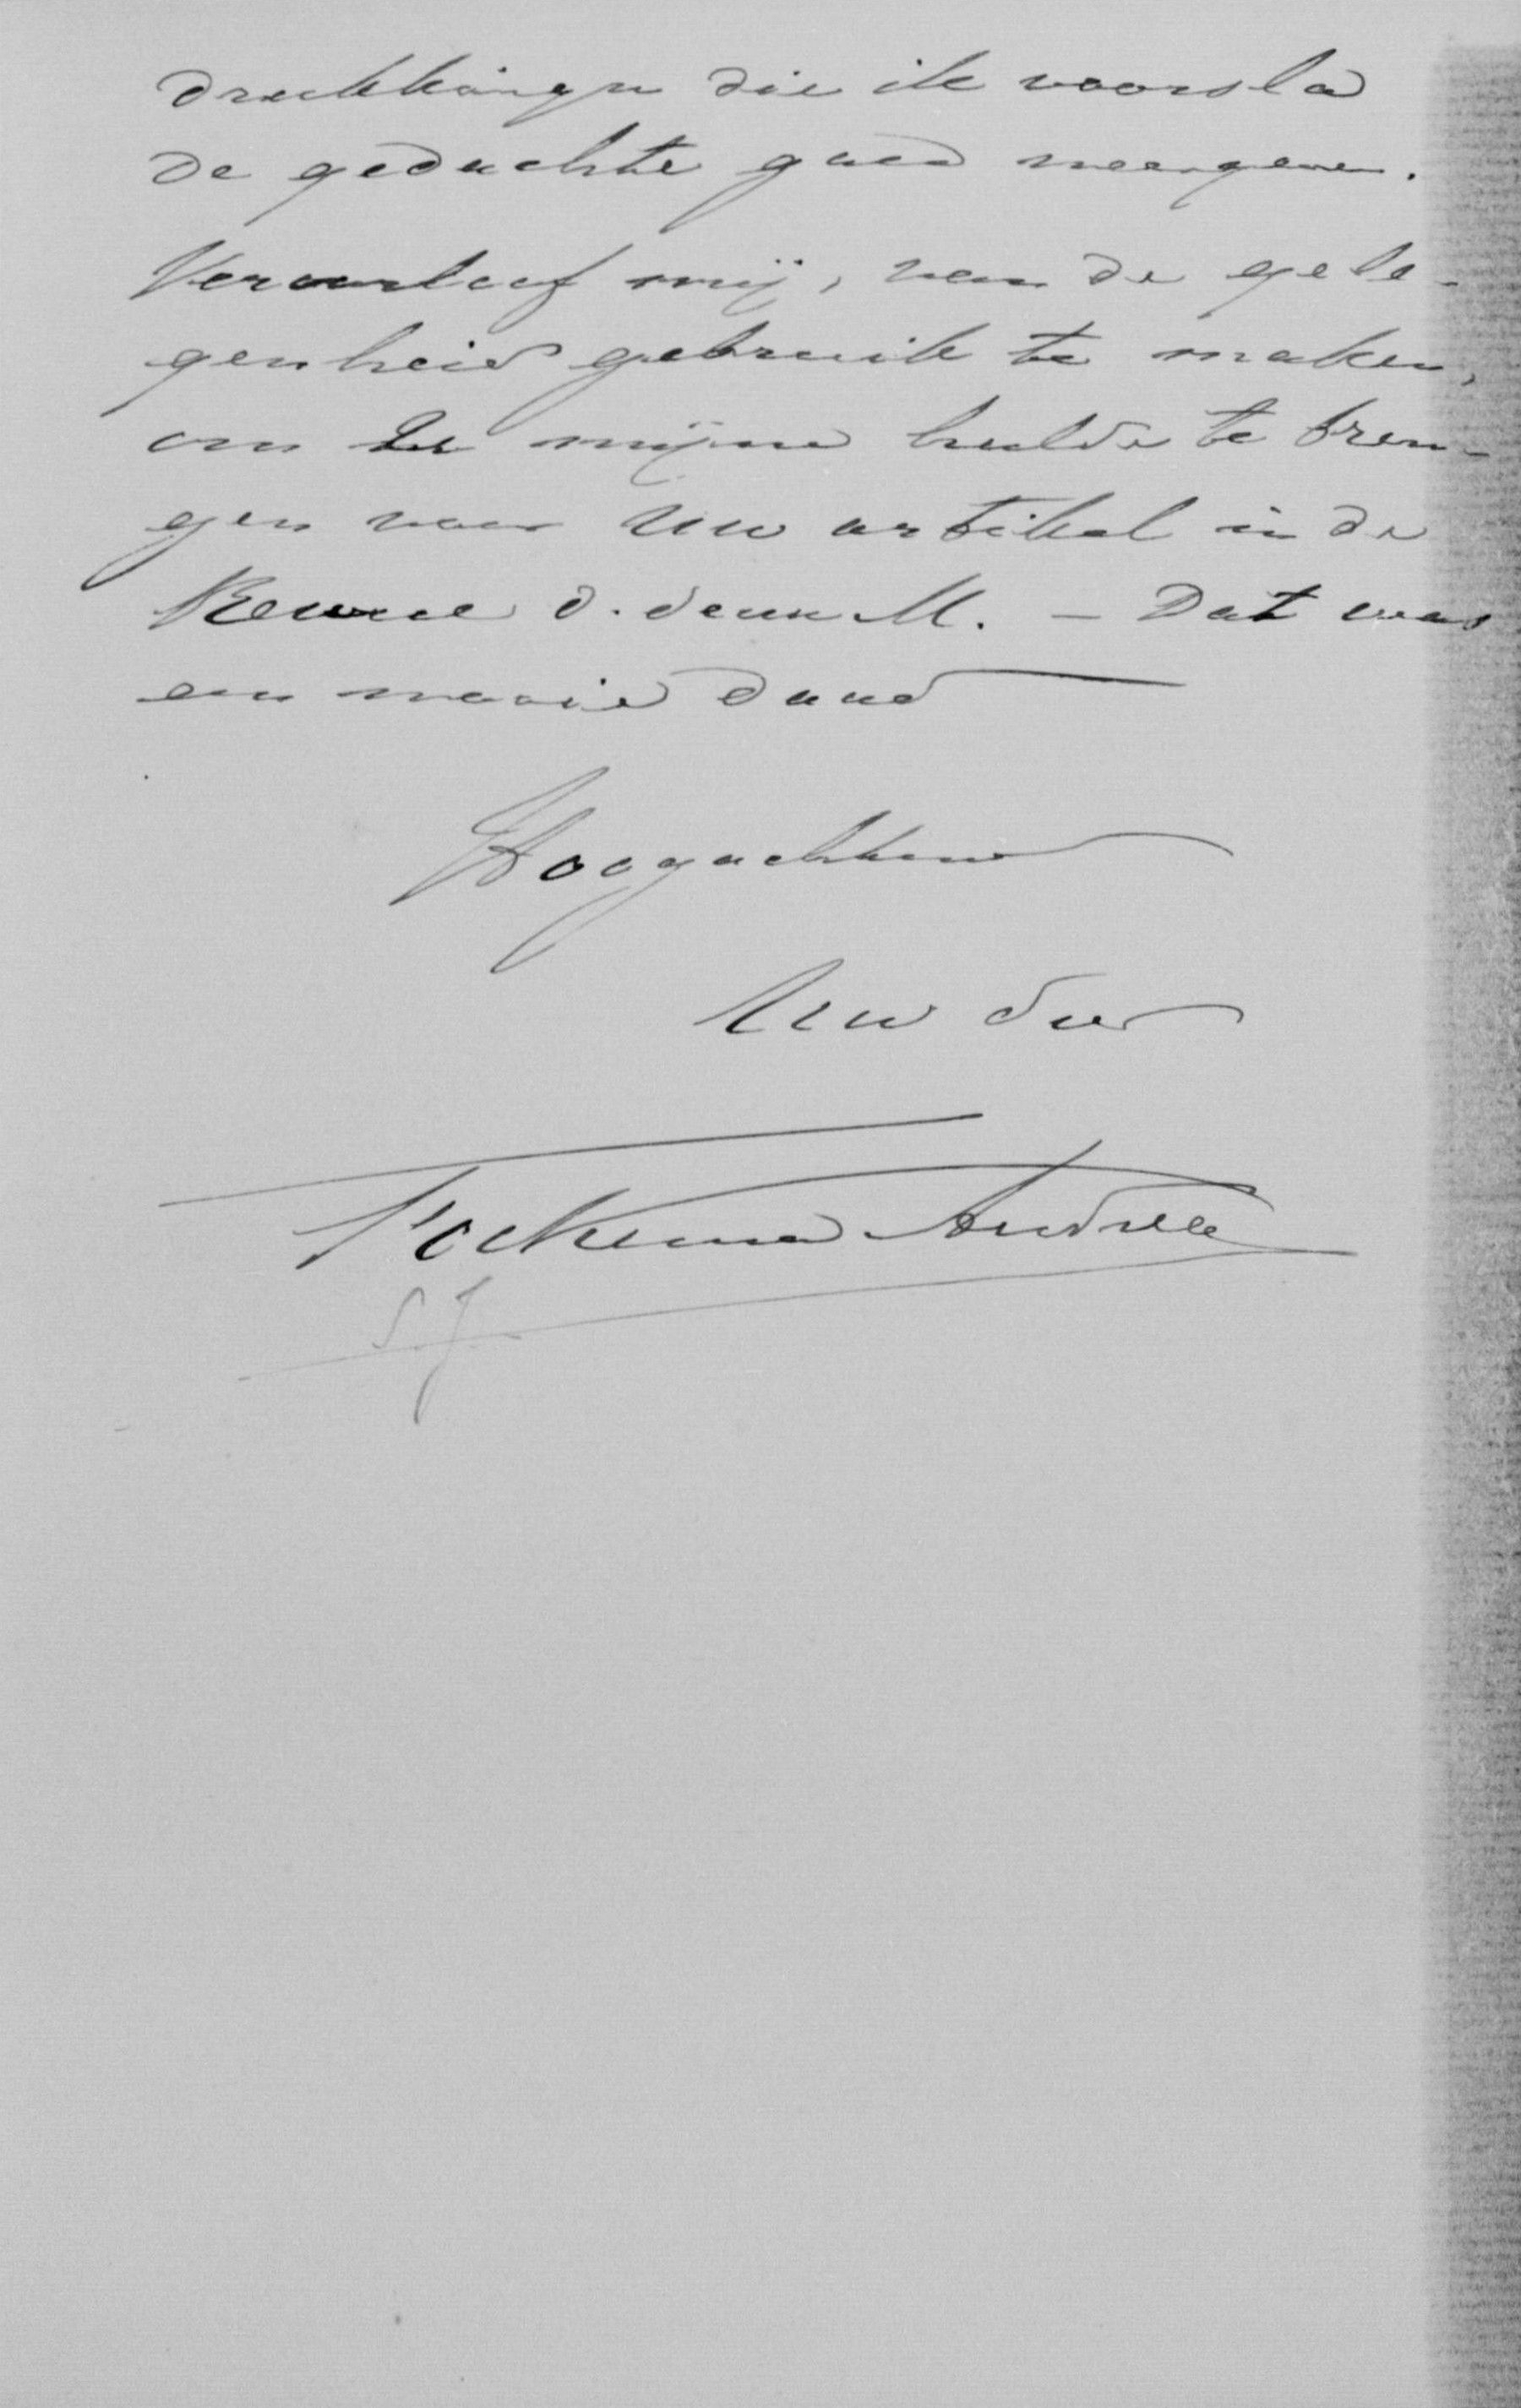 drukkingen die ik voorsla
de gedachte goed weergeven.
Veroorloof mij, van de gele-
genheid gebruik te maken,
om U mijne hulde te bren-
gen voor Uw artikel in de
Revue d. deux M. - Dat was
een mooie daad
Hoogachtend
Uw dw
Fockema Andreae
SJ